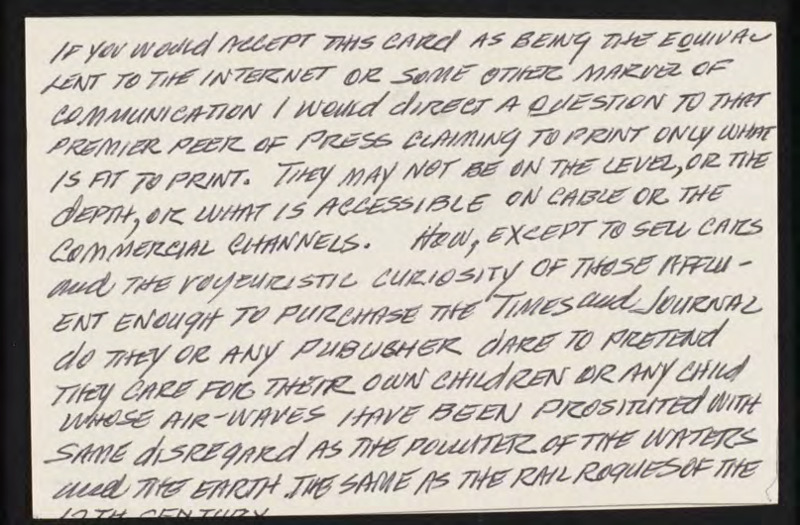 IF YOU WOULD ACCEPT THIS CARD AS BEING THE EQUIVA-
LENT TO THE INTERNET OR SOME OTHER MARVEL OF
COMMUNICATION I WOULD DIRECT A QUESTION TO THAT
PREMIER PEER OF PRESS CLAIMING TO PRINT ONLY WHAT
IS FIT TO PRINT. THEY MAY NOT BE ON THE LEVEL, OR THE
DEPTH, OR WHAT IS ACCESSIBLE ON CABLE OR THE
COMMERCIAL CHANNELS. HOW, EXCEPT TO SELL CARS
and THE VOYEURISTIC CURIOSITY OF THOSE AFFLU-
ENT ENOUGH TO PURCHASE THE TIMES and JOURNAL
do THEY OR ANY PUBLISHER dARE TO PRETEND
THEY CARE FOR THEIR OWN CHILDREN OR ANY CHILD
WHOSE AIR-WAVES HAVE BEEN PROSTITUTED WITH
SAME dISREGARd AS THE POLLUTER OF THE WATERS
and THE EARTH. THE SAME AS THE RAIL ROGUES OF THE
19TH CENTURY